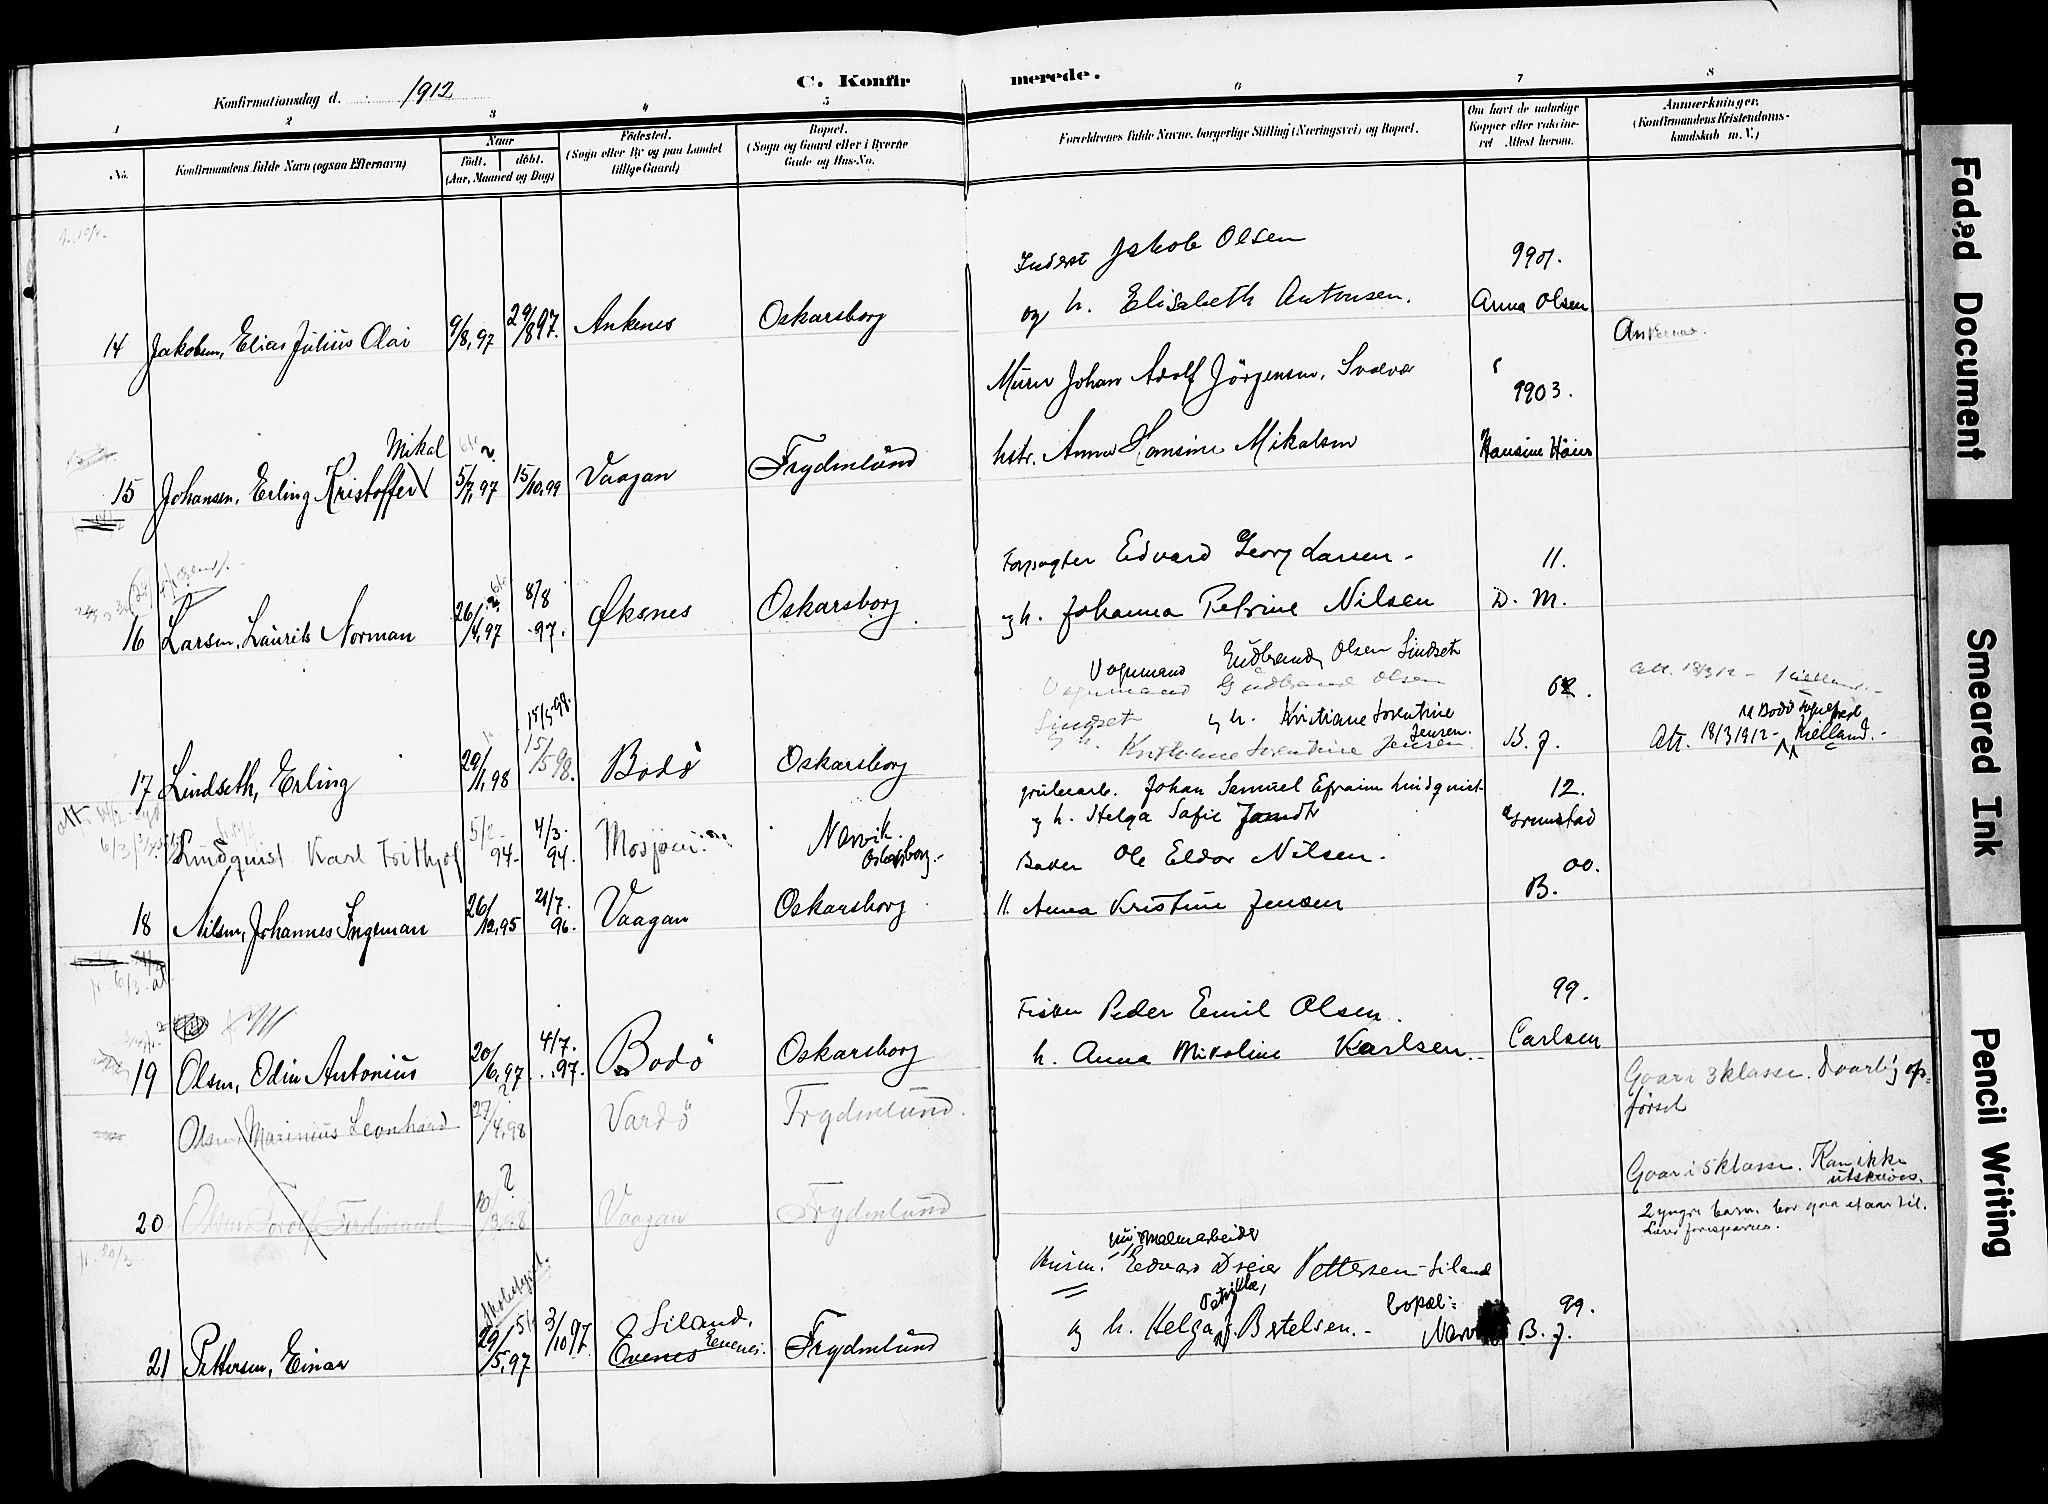 C. Konfirmerede.
Konfirmationsdag d. 1912
1 2 3 4 5 6 7 8
No.
Konfirmandens fulde Navn (ogsaa Efternavn)
Naar
født. døbt.
(Aar, Maaned og Dag)
Fødested.
(Sogn eller By og paa Landet
tillige Gaard)
Bopæl.
(Sogn og Gaard eller i Byerne
Gade og Hus-No.
Forældrenes fulde Navne, borgerlige Stilling (Næringsvei) og Bopæl.
Om havt de naturlige
Kopper eller vaksine-
ret Attest herom.
Anmærkninger.
(Konfirmandens Kristendoms-
kundskab m. V.)
Inderst Jakob Olsen 9901.
og h. Elisabeth Antonsen. Anna Olsen
14 Jakobsen, Elias Julius Olai 9/8,97 29/8 97. Ankenes Oskarsborg
Ankenes.
Murer Johan Adolf Jörgensen, Svolvær 9903.
hstr. Anna Hansine Mikalsen Hansine Höier
Mikal
15 Johansen, Erling Kristoffer 5/7,97 15/10.99 Vaagan Frydenlund
Forpagter Edvard Georg Larsen - 11.
og h. Johanna Petrine Nilsen D. M.
16 Larsen, Laurits Norman 26/4,97 8/8 97. Øksnes Oskarsborg.
Vognmand Gudbrand Olsen Lindset
Vognmand Gudbrand Olsen
Lindset og h. Kristiane Lorentine
Jensen.
og h. Kristiane Lorentine Jensen. B. J.
Att. 18/3 12 - Kielland. -
Att. 18/3 1912 - Kielland. -
15/5 98.
17 Lindseth, Erling 29/1,98 15/5 98. Bodö Oskarsborg
grubearb. Johan Samuel Efraim Lindqvist 12.
og h. Helga Sofie Grimstad
Lindquist Karl Frithjof 5/2 94 - 4/3. 94. Mosjøen Narvik.
Oskarsborg. -
Bager Ole Eldor Nilsen. 00.
B.
18 Nilsen, Johannes Ingeman 26/12,95 21/7. 96. Vaagan Oskarsborg. 11. Anna Kristine Jensen
Fisker Peder Emil Olsen. 99.
h. Anna Mikoline Karlsen. - Carlsen
19 Olsen, Odin Antonius 20/6,97 4/7. 97. Bodö Oskarsborg
Olsen, Marinius Leonhard 27/4,98 Vardö Frydenlund.
Gaar i 3 klasse. Daarlig op-
førsel
Gaar i 5 klasse. Kan ikke
utskrives.
20 Olsen Torolf Ferdinand 10/3,98 Vaagan Frydenlund
2 yngre barn. bor gaa et aar til.
Lærer forespørres.
nu malmarbeider
Husm. Edvard Dreier Pettersen - Liland
Petrikke,
og h. Helga Bertelsen. - bopæl: Narvik 99. B. J.
21 Pettersen, Einar 29/5,97 3/10 97. Liland, Evenes. Evenes Frydenlund
Faded Document
Smeared Ink
Pencil Writing